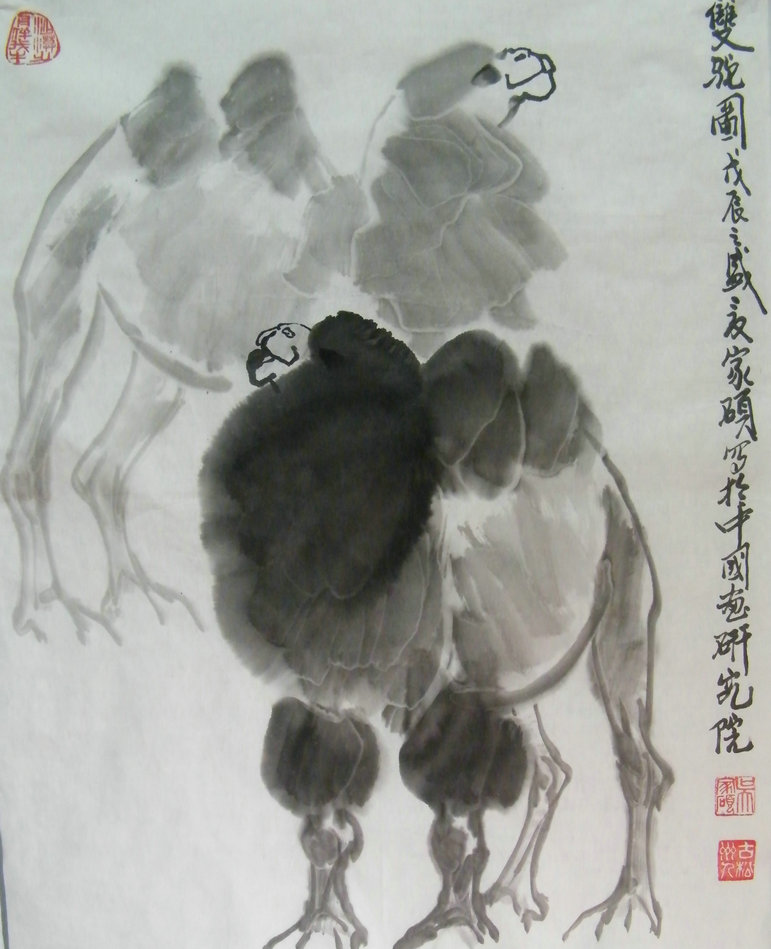 雙駝圖戊辰之盛夏家碩写於中國畫研究院